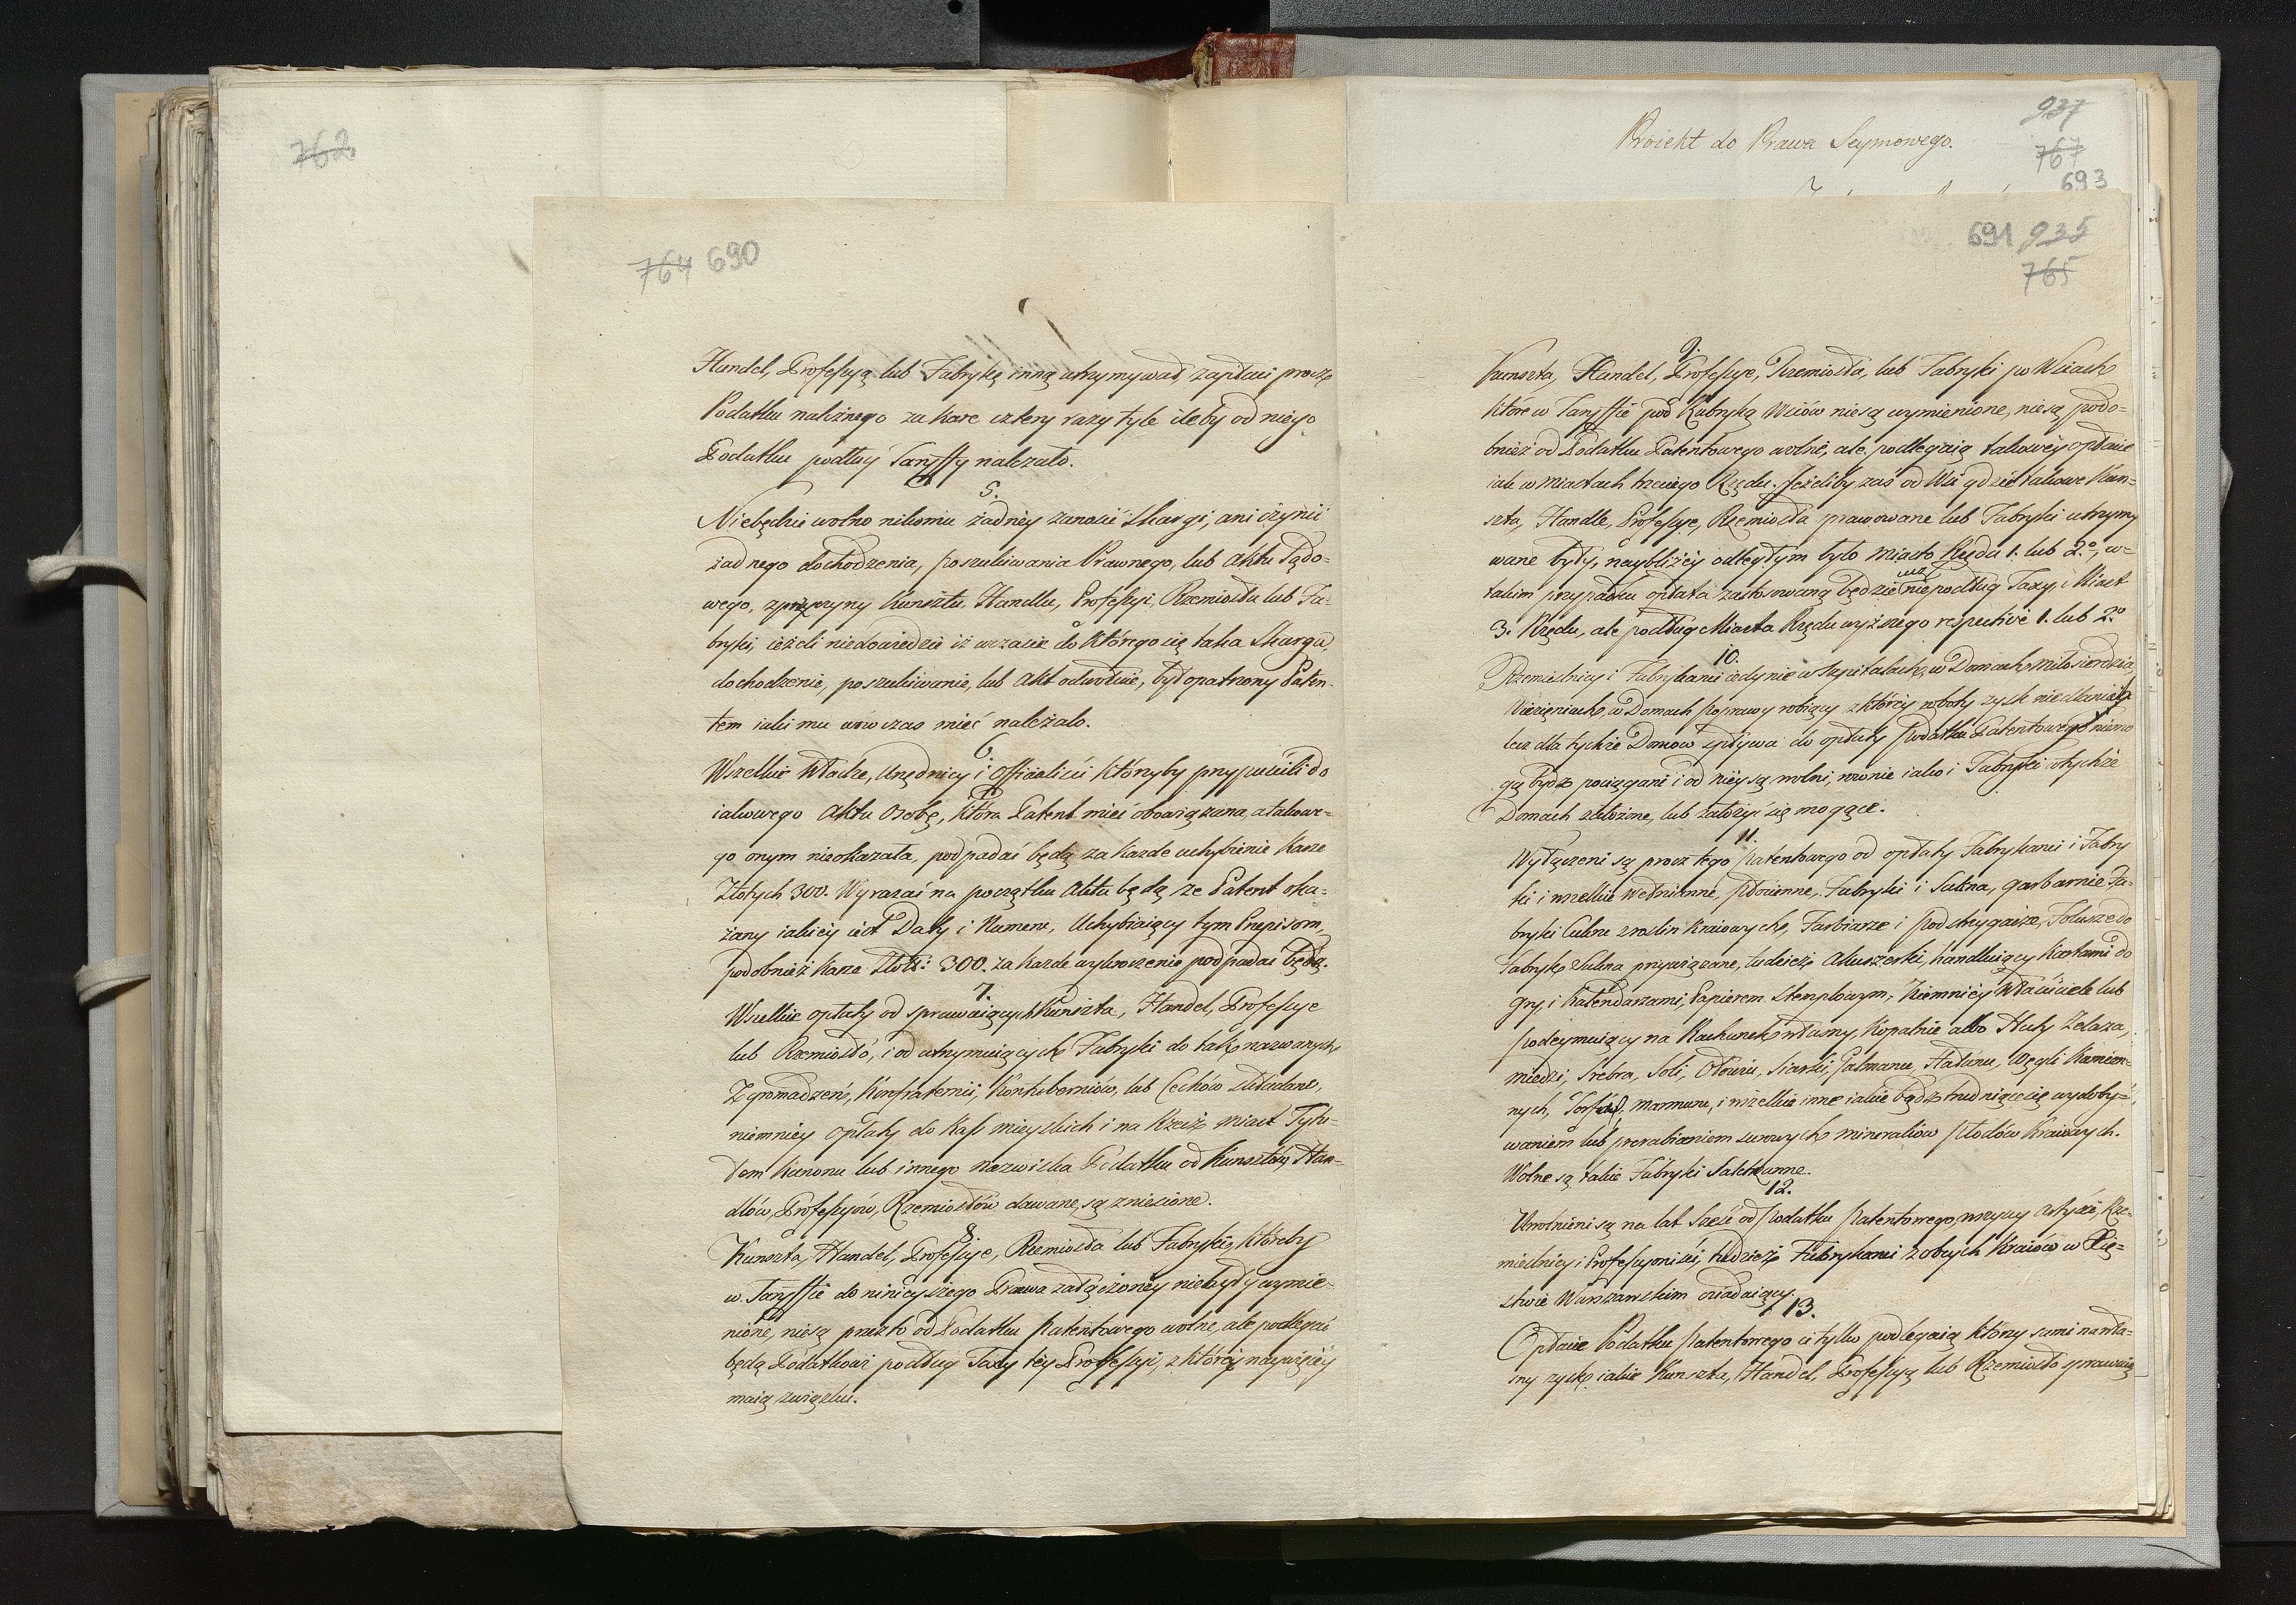 762
Proiekt do Prawa Seymowego.
937
767
693
764 690
Handel, Professyą lub Fabrykę inną utrzymywał, zapłaci procz
Podatku należnego za karę cztery razy tyle ileby od niego
Podatku podług Taryffy należało.
5.
Niebędzie wolno nikomu żadney zanosić skargi, ani czynić
żadnego dochodzenia, poszukiwania Prawnego, lub Aktu Sądo-
wego, z przyczyny Kunsztu, Handlu, Professyi, Rzemiosła lub Fa-
bryki, ieżeli niedowiedzie iż w czasie do którego się taka skarga,
dochodzenie, poszukiwanie, lub Akt odwołuie, był opatrzony Paten-
tem iaki mu wówczas mieć należało.
6.
Wszelkie Władze, Urzędnicy i Officialiści którzyby przypuścili do
iakowego Aktu Osobę, która Patent mieć obowiązana, a takowe-
go onym nieokazała, podpadać będą za każde uchybienie karze
Złotych 300. Wyrażać na początku Akta będą, że Patent oka-
zany iakiey iest Daty i Numeru, Uchybiaiący tym Przepisom,
podobnież karze Złott: 300. za każde wykroczenie podpadać będą.
7.
Wszelkie opłaty od sprawuiących Kunszta, Handel, Professye
lub Rzemiosło, i od utrzymuiących Fabryki do tak nazwanych
Zgromadzeń, Konfraternii, Kontuberniów, lub Cechów składane,
niemniey opłaty do Kass mieyskich i na Rzecz miast Tytu-
łem Kanonu lub innego nazwiska Podatku od Kunsztów, Han-
dlów, Professyów, Rzemiosłów dawane, są zniesione.
8.
Kunszta, Handel, Professye, Rzemiosła lub Fabryki, któreby
w Taryffie do ninieyszego Prawa załączoney niebyły wymie-
nione, niesą przezto od Podatku Patentowego wolne, ale podlegać
będą Podatkowi podług Taxy tey Professyi, z którą naywięcey
maią związku.
691 935
765
9.
Kunszta, Handel, Professye, Rzemiosła, lub Fabryki po Wsiach
które w Taryffie pod Rubryką Wsiów niesą wymienione, niesą podo-
bnież od Podatku Patentowego wolne, ale podlegaią takowey opłacie
iak w miastach trzeciego Rzędu. Jeżeliby zaś od Wsi gdzie takowe Kun-
szta, Handle, Professye, Rzemiosła prawowane lub Fabryki utrzymy
wane były, naybliżey odległym było miasto Rzędu 1. lub 2.º, w-
takim przypadku opłata zastosowaną będzie nie podług Taxy Miast
3. Rzędu, ale podług Miasta Rzędu wyższego respective 1. lub 2.º
10.
Rzemieślnicy i Fabrykanci iedynie w Szpitalach, w Domach miłosierdzia,
Więzieniach, w Domach poprawy robiący z którey roboty zysk nie dla nich
lecz dla tychże Domow spływa do opłaty Podatku Patentowego niemo
gą bydź pociągani i od niey są wolni, równie iako i Fabryki w tychże
Domach założone, lub założyć się mogące.
11.
Wyłączeni są procz tego Patentowego od opłaty Fabrykanci i Fabry
ki i wszelkie wełnianne, płocienne, Fabryki i Sukna, garbarnie, Fa-
bryki Cukru z roslin kraiowych, Farbiarze i Postrzygacze, Folusze do
Fabryk Sukna przywiązane, tudzież Akuszerki, handluiący Kartami do
gry, i Kalendarzami, Papierem Stemplowym, Niemniey Właściciele lub
podeymuiący na Rachunek własny, Kopalnie albo Huty Żelaza,
miedzi, srebra, Soli, Ołowiu, Siarki, Galmanu, Hałunu, Węgli Kamien-
nych, Torfu, marmuru, i wszelkie inne iakie bądź trudniące się wydoby-
waniem lub przerabianiem surowych minerałów płodów kraiowych.
Wolne są także Fabryki Saletrzanne.
12.
Uwolnieni są na lat sześć od Podatku Patentowego wszyscy Artyści, Rze-
mieślnicy i Professyoniści, tudzież Fabrykanci z obcych Kraiów w Xię-
stwie Warszawskim osiadaiący.
13.
Opłacie Podatku Patentowego ci tylko podlegaią którzy sami na wła-
sny zysk iakie Kunszta, Handel, Professyą lub Rzemiosło sprawuią